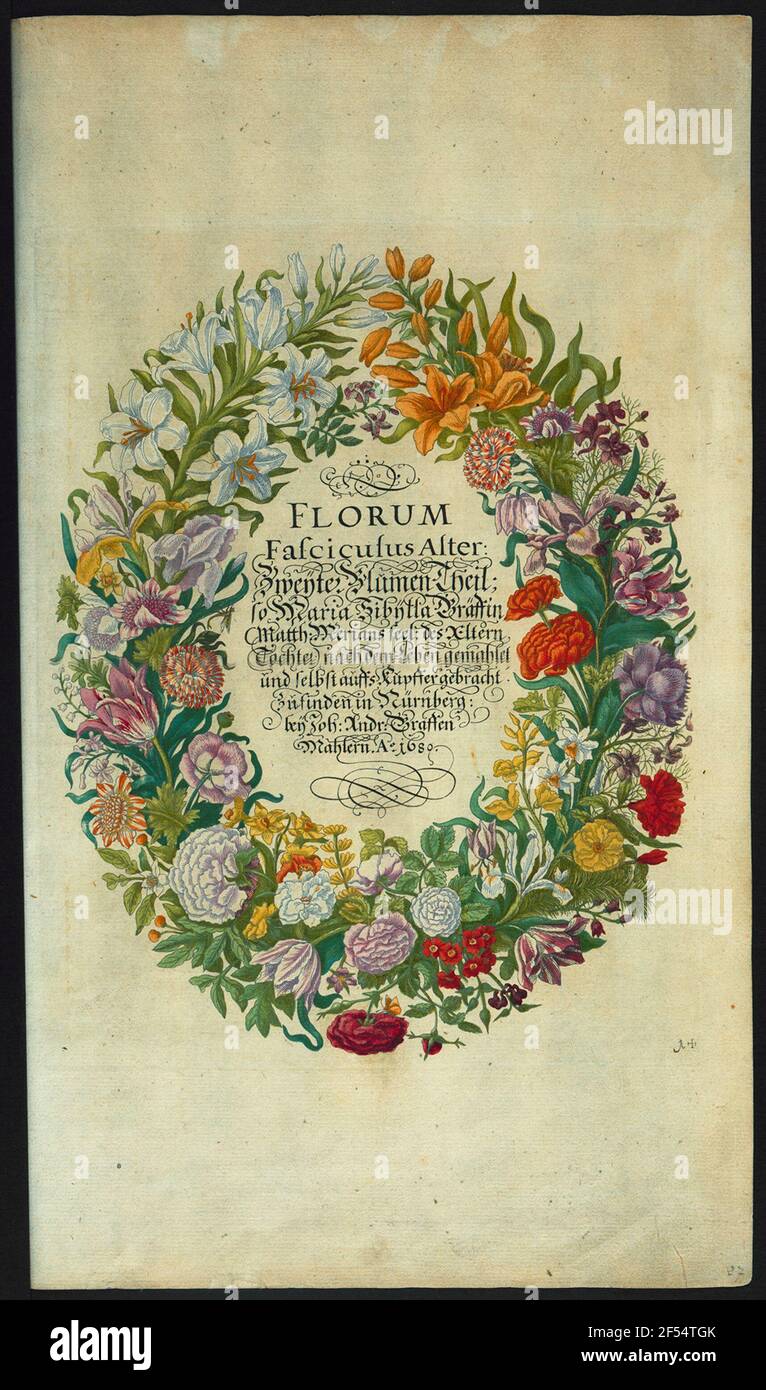 FLORUM
Fasciculus Alter:
Zweÿter Blumen-Theil;
so Maria Sibÿlla Gräffin
Matth: Merians seel: des Æltern
Tochter nach dem Leben gemahlet
und selbst auffs Kupffer gebracht
Zufinden in Nürnberg:
beÿ Joh: Andr: Gräffen
Mahlern. Aº 1680.
a
alamy
alamy
Image ID: 2F54TGK
www.alamy.com